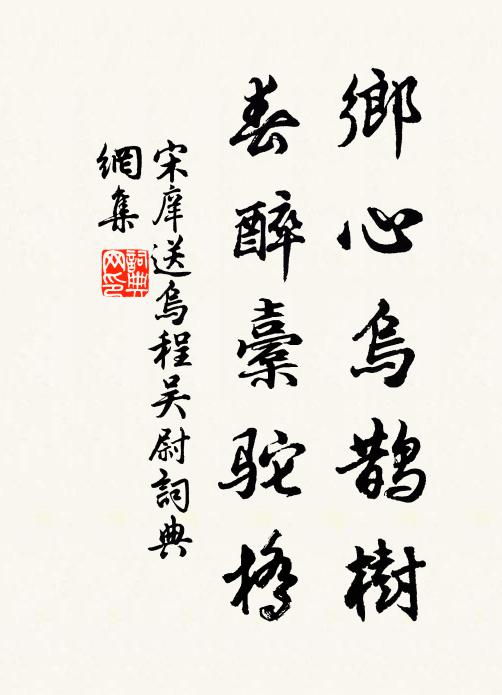 鄉心烏鵲樹
春醉橐駝橋
宋庠送烏程吳尉詞典
網集
詞典
网印